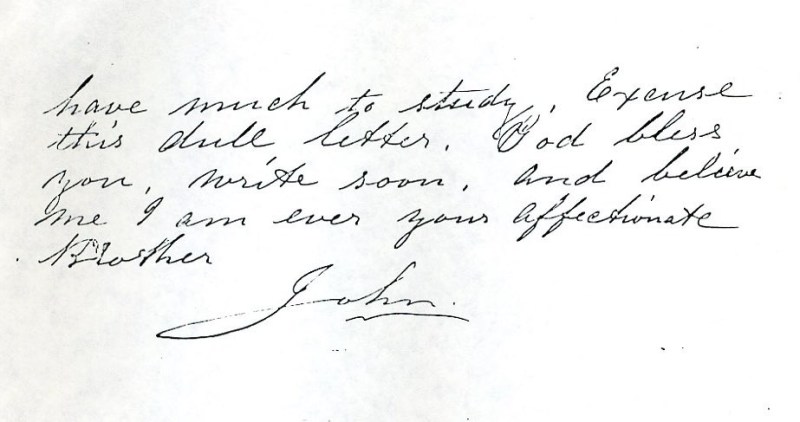 have much to study. Excuse
this dull letter. God bless
you, write soon, and believe
me I am ever your affectionate
Brother
John.